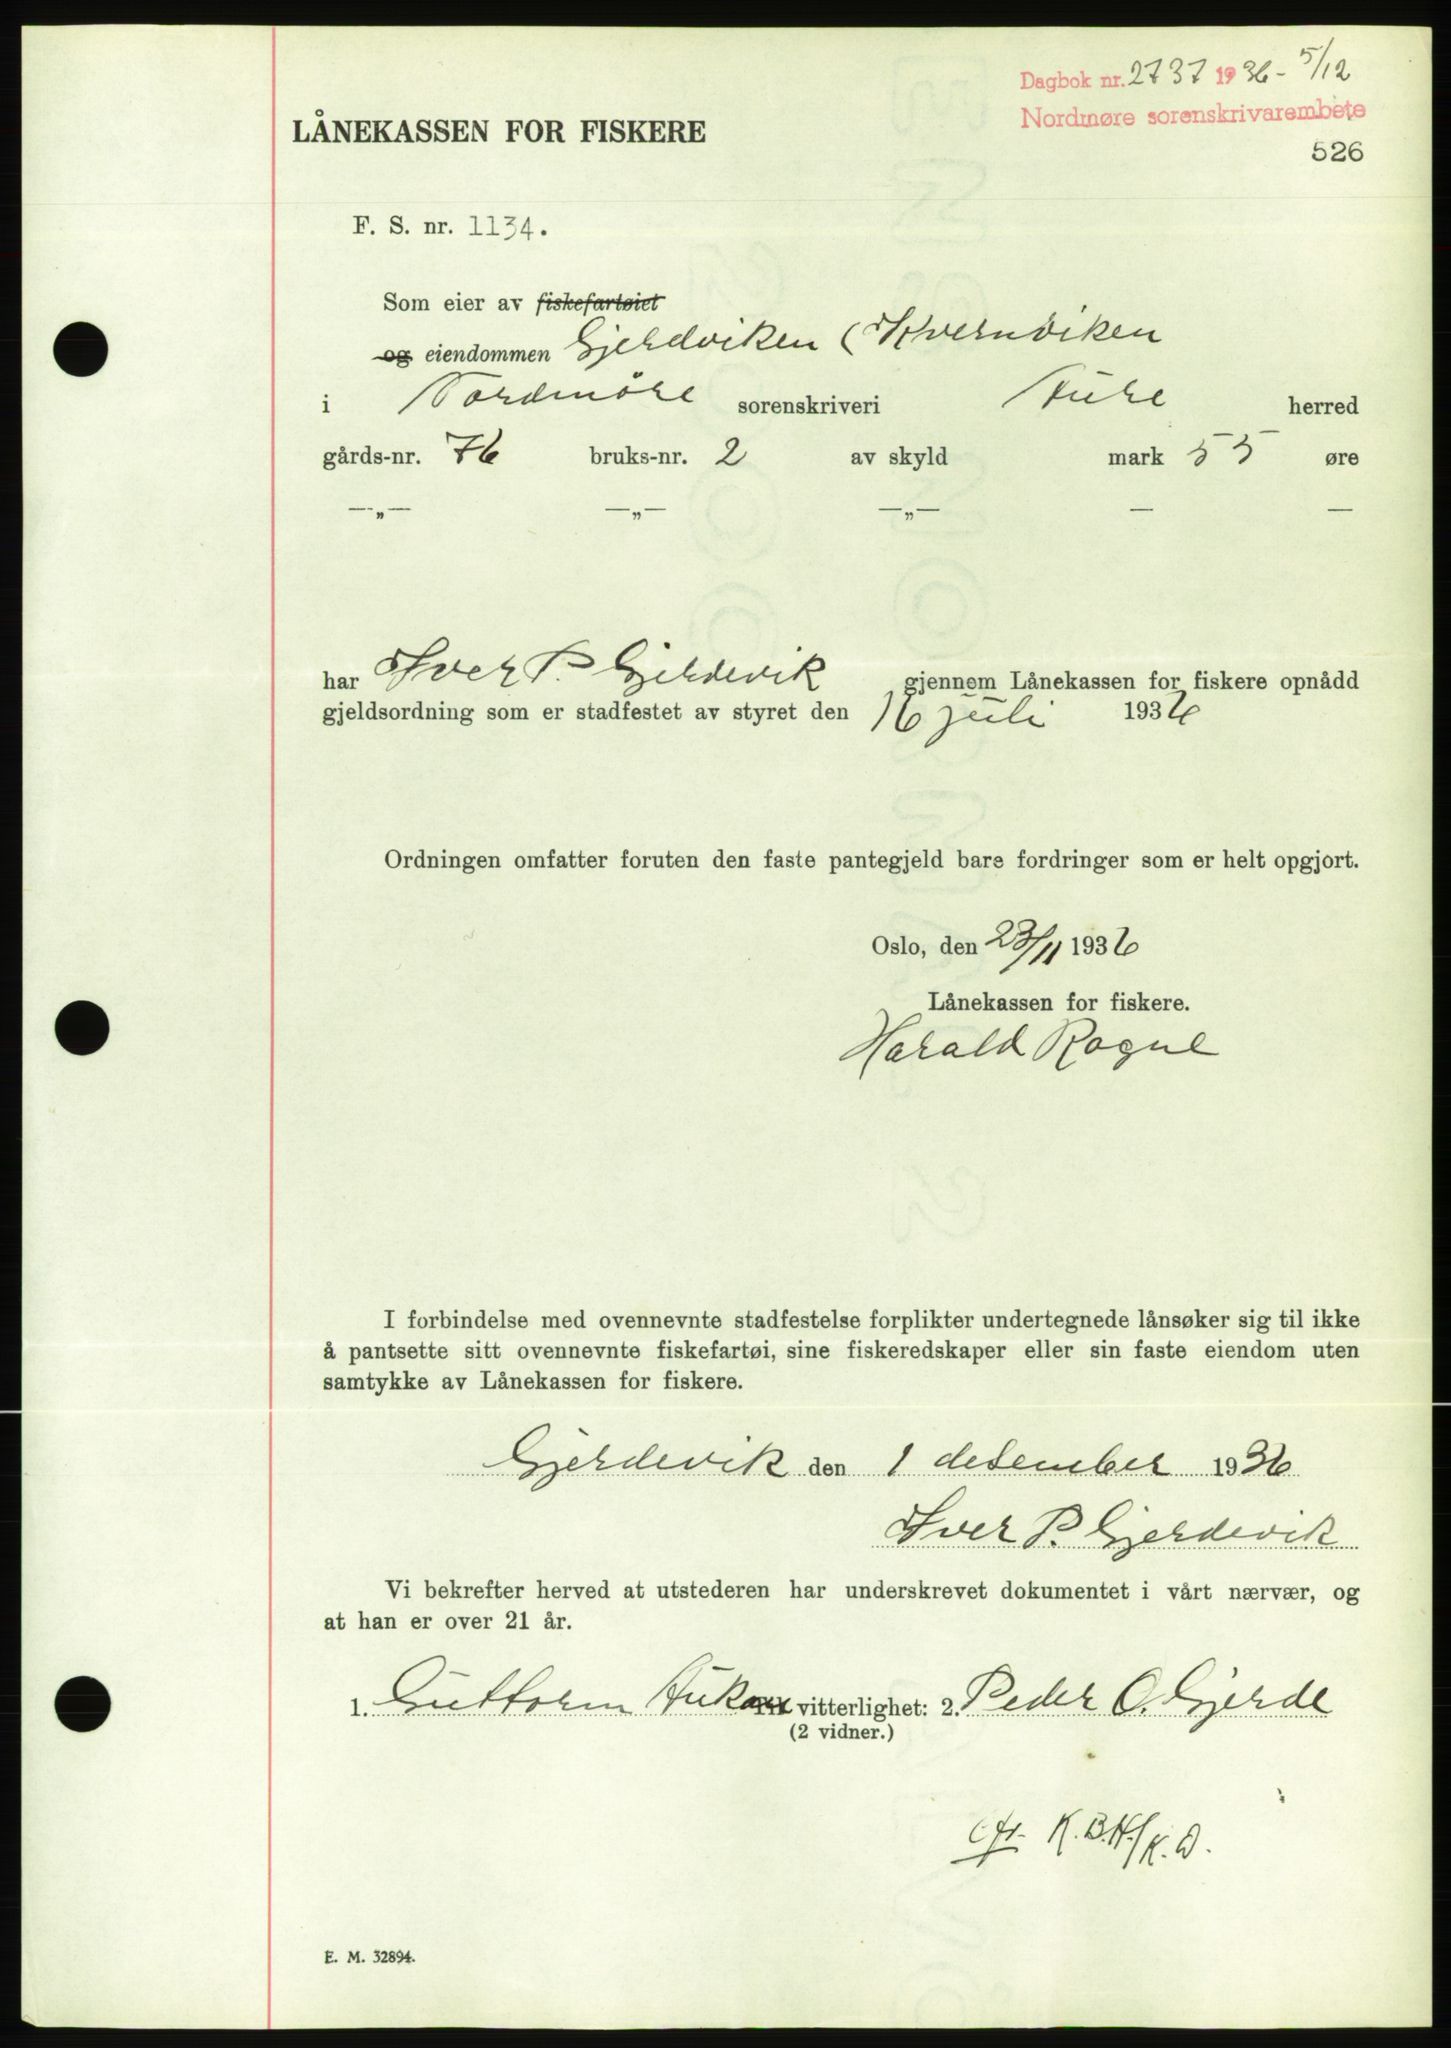 Dagbok nr. 2737 1936 - 5/12
Nordmøre sorenskrivarembete
526
LÅNEKASSEN FOR FISKERE
F. S. nr. 1134.
Som eier av fiskefartøiet
og eiendommen Gjerdviken (Kvernviken
i Nordmøre sorenskriveri Aure herred
gårds-nr. 76 bruks-nr. 2 av skyld mark 55 øre
—„— —„— —„— — —
har Iver P. Gjerdevik gjennem Lånekassen for fiskere opnådd
gjeldsordning som er stadfestet av styret den 16 juli 1936
Ordningen omfatter foruten den faste pantegjeld bare fordringer som er helt opgjort.
Oslo, den 23/11 1936
Lånekassen for fiskere.
Harald Rogne
I forbindelse med ovennevnte stadfestelse forplikter undertegnede lånsøker sig til ikke
å pantsette sitt ovennevnte fiskefartøi, sine fiskeredskaper eller sin faste eiendom uten
samtykke av Lånekassen for fiskere.
Gjerdevik den 1 desember 1936
Iver P. Gjerdevik
Vi bekrefter herved at utstederen har underskrevet dokumentet i vårt nærvær, og
at han er over 21 år.
1. Guttorm Aukan Til vitterlighet: 2. Peder O. Gjerde
(2 vidner.)
K.B.H./K.D.
E. M. 32894.